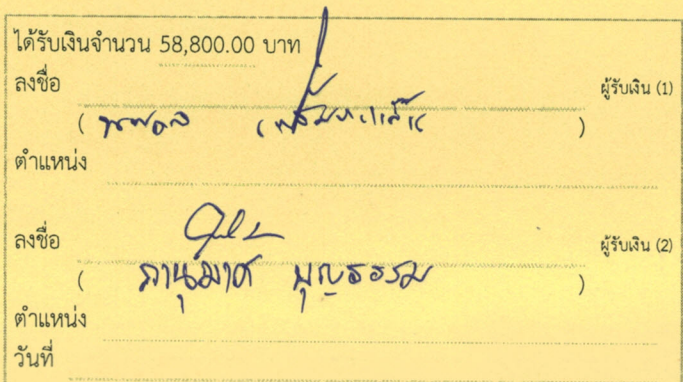 ได้รับเงินจำนวน 58,800.00 บาท
ลงชื่อ ผู้รับเงิน (1)
( )
ตำแหน่ง
ลงชื่อ ผู้รับเงิน (2)
( ภานุมาศ บุญธรรม )
ตำแหน่ง
วันที่